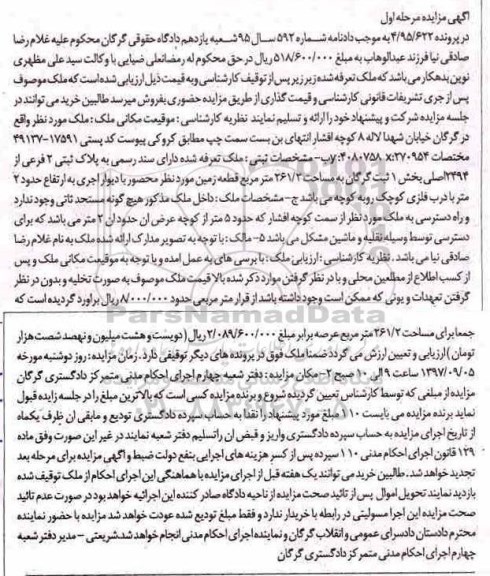 آگهی مزایده مرحله اول
در پرونده ۴/۹۵/۶۲۲ به موجب دادنامه شماره ۵۹۲ سال ۹۵ شعبه یازدهم دادگاه حقوقی گرگان محکوم علیه غلام رضا
صادقی نیا فرزند عبدالوهاب به مبلغ ۵۱۸/۶۰۰/۰۰۰ ریال در حق محکوم له رمضانعلی ضیایی با وکالت سید علی مظهری
نوین بدهکار می باشد که ملک تعرفه شده زیر پس از توقیف کارشناسی وبه قیمت ذیل ارزیابی شده است که ملک موصوف
پس از جری تشریفات قانونی کارشناسی و قیمت گذاری از طریق مزایده حضوری بفروش میرسد طالبین خرید می توانند در
جلسه مزایده شرکت و پیشنهاد خود را ارائه و تسلیم نمایند نظریه کارشناسی : موقیعت مکانی ملک : ملک مورد نظر واقع
در گرگان خیابان شهدا لاله ۸ کوچه افشار انتهای بن بست سمت چپ مطابق کروکی پیوست کد پستی ۱۷۵۹۱-۴۹۱۳۷
مختصات x:۲۷۰۹۵۴ y:۴۰۸۰۷۵۸ ب- مشخصات ثبتی : ملک تعرفه شده دارای سند رسمی به پلاک ثبتی ۲ فرعی از
۲۴۹۴اصلی بخش ۱ ثبت گرگان به مساحت ۲۶۱/۲ متر مربع قطعه زمین مورد نظر محصور با دیوار آجری به ارتفاع حدود ۲
متر با درب فلزی کوچک رو به کوچه می باشد ج- مشخصات ملک : داخل ملک مذکور هیچ گونه مستحدثاتی وجود ندارد
و راه دسترسی به ملک مورد نظر از سمت کوچه افشار که حدود ۵ متر از کوچه عرض آن حدود آن ۲ متر می باشد که برای
دسترسی توسط وسیله نقلیه و ماشین مشکل می باشد ۵- ملک : با توجه به تصویر مدارک ارائه شده ملک به نام غلام رضا
صادقی نیا می باشد . نظریه کارشناسی : ارزیابی ملک : با برسی های به عمل آمده و با توجه به موقیعت مکانی ملک و پس
از کسب اطلاع از مطلعین محلی و با در نظر گرفتن موارد ذکر شده بالا قیمت ملک موصوف به صورت تخلیه و بدون در نظر
گرفتن تعهدات و یونی که ممکن است وجود داشته باشد از قرار متر مربعی حدود ۸/۰۰۰/۰۰۰ ریال برآورد گردیده است که
ParsNamadData
جمعا برای مساحت ۲۶۱/۲ متر مربع عرصه برابر مبلغ ۲/۰۸۹/۶۰۰/۰۰۰ ریال (دویست و هشت میلیون و نهصد شصت هزار
تومان ) ارزیابی و تعیین ارزش می گردد ضمنا ملک فوق در پرونده های دیگر توقیفی دارد . زمان مزایده : روز دوشنبه مورخه
۱۳۹۷/۰۹/۰۵ ساعت ۹ الی ۱۰ صبح ۲- مکان مزایده : دفتر شعبه چهارم اجرای احکام مدنی متمرکز دادگستری گرگان
مزایده از مبلغی که توسط کارشناس تعیین گردیده شروع و برنده مزایده کسی است که بالاترین مبلغ را در جلسه زایده قبول
نماید برنده مزایده می بایست ۱۰٪ مبلغ مورد پیشنهاد را نقدا به حساب سپرده دادگستری تودیع و مابقی آن ظرف یکماه
از تاریخ اجرای مزایده به حساب سپرده دادگستری واریز و قبض آن راتسلیم دفتر شعبه نمایند در غیر این صورت وفق ماده
۱۲۹ قانون اجرای احکام مدنی ۱۰٪ سپرده پس از کسر هزینه های اجرایی بنفع دولت ضبط و آگهی مزایده برای مرحله بعد
تجدید خواهد شد . طالبین خرید می توانند یک هفته قبل از اجرای مزایده با هماهنگی این اجرای احکام از ملک توقیف شده
بازدید نمایند تحویل اموال پس از تائید صحت مزایده از ناحیه دادگاه صادر کننده این اجرائیه خواهد بود در صورت عدم تائید
صحت مزایده این اجرا مسولیتی در رابطه با خریدار ندارد و فقط مبلغ تودیع شده عودت خواهد شد مزایده با حضور نماینده
محترم دادستان دادسرای عمومی و انقلاب گرگان و نماینده اجرای احکام مدنی انجام خواهد شد. شریعتی - مدیر دفتر شعبه
چهارم اجرای احکام مدنی متمرکز دادگستری گرگان